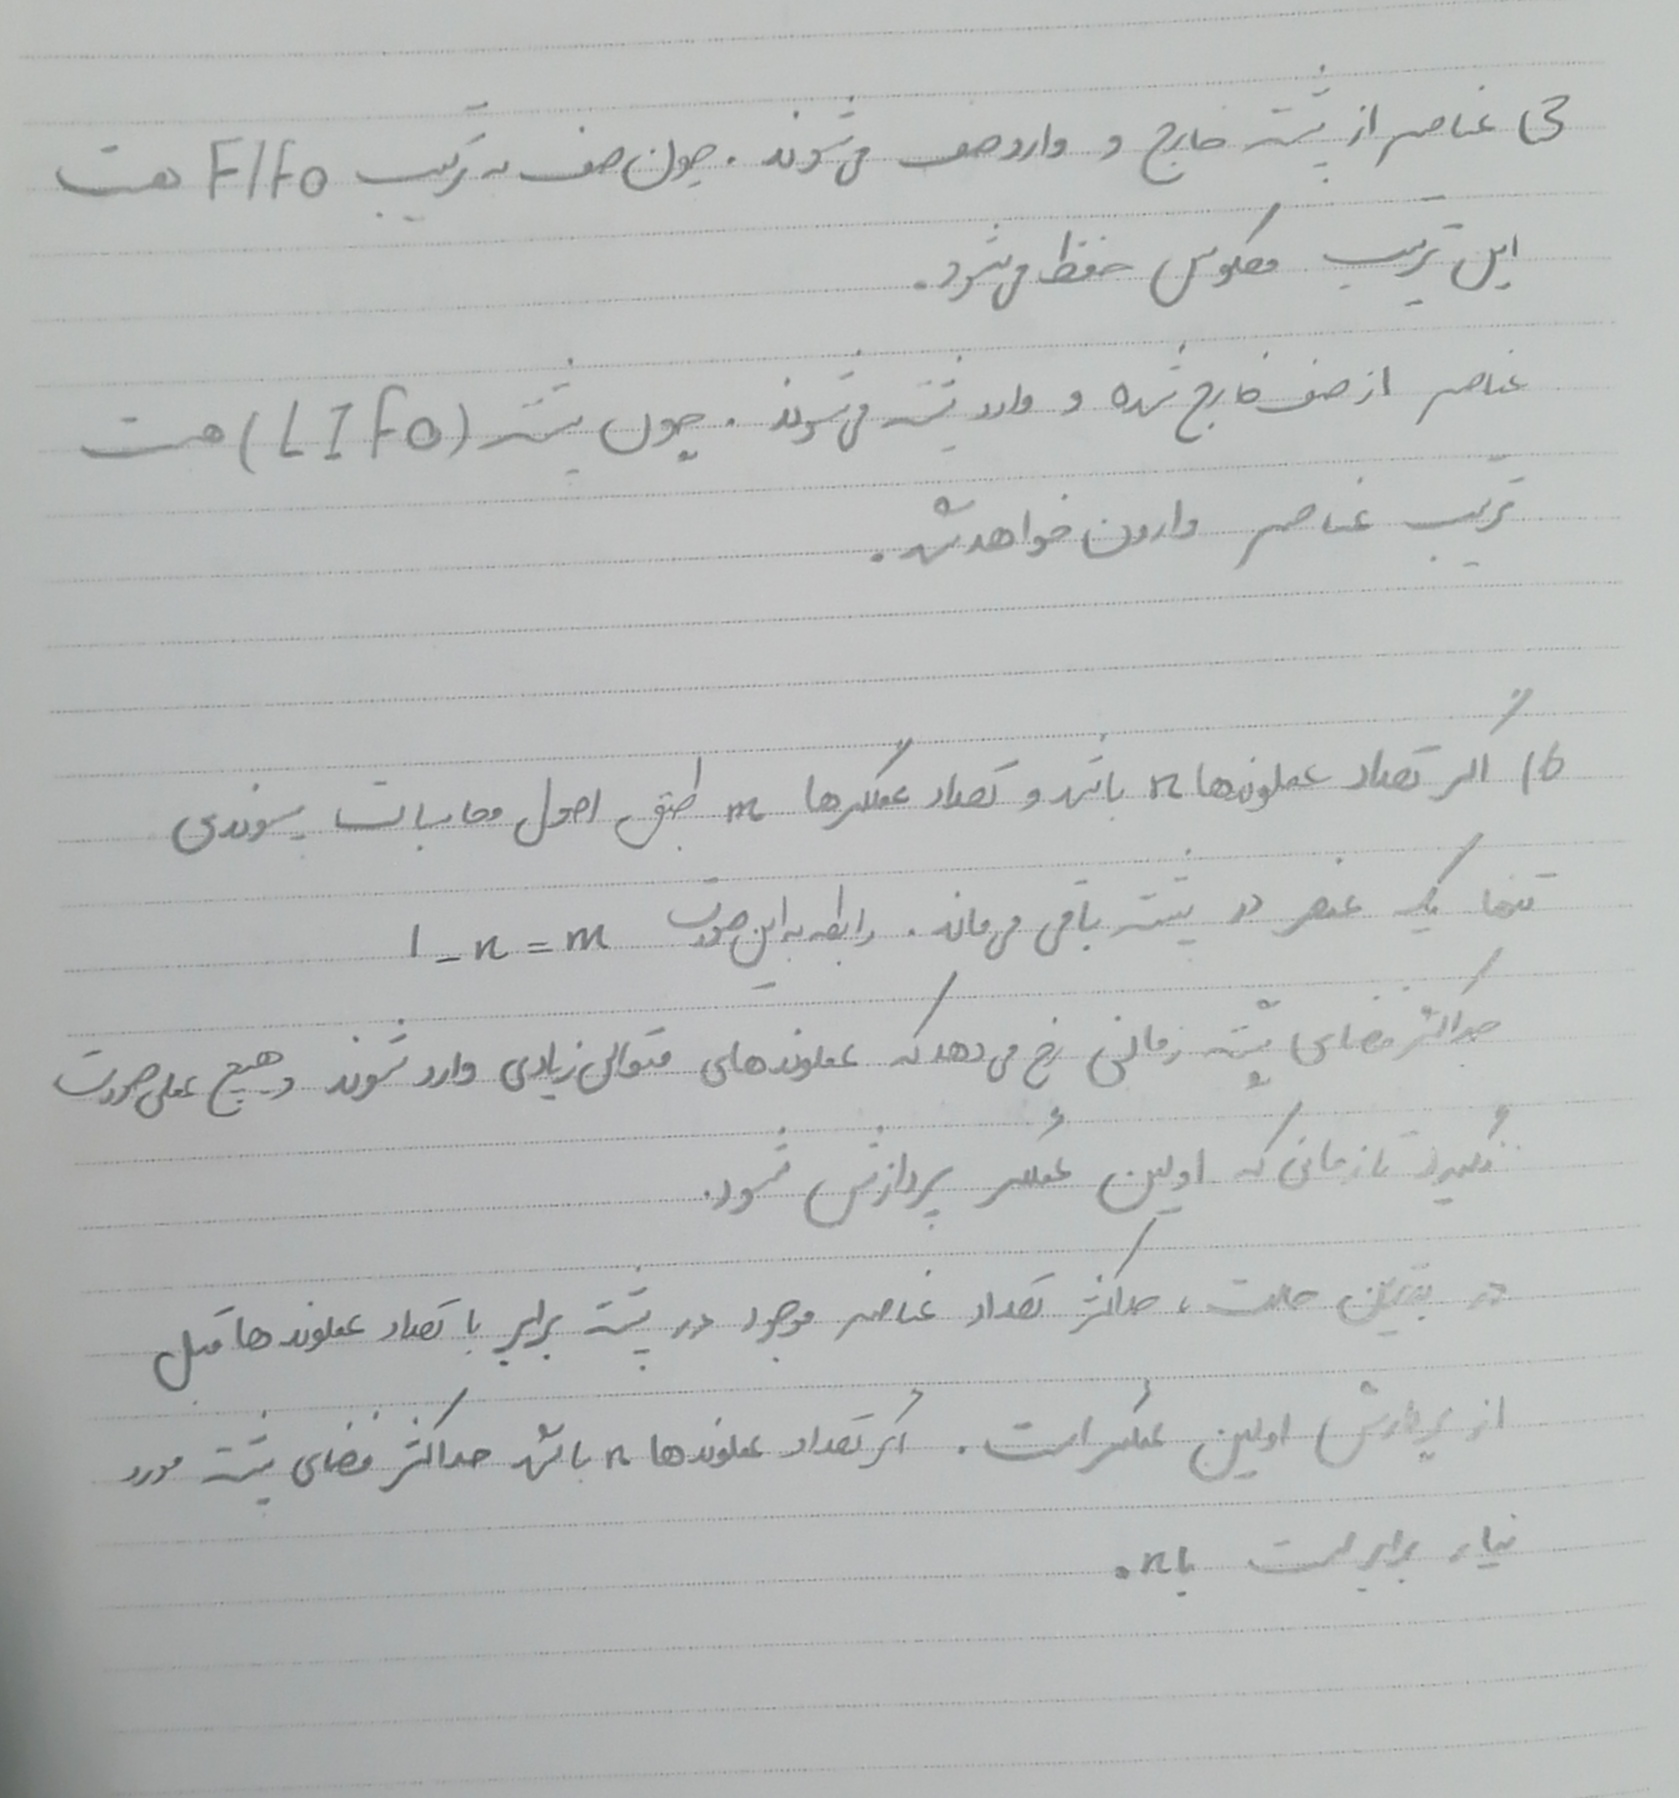 3) عناصر از پشته خارج و وارد صف می‌شوند. چون صف به ترتیب FIFO هست
این ترتیب معکوس حفظ می‌شود.
عناصر از صف خارج شده و وارد پشته می‌شوند. چون پشته (LIFO) هست
ترتیب عناصر وارون خواهد شد.
6) اگر تعداد عملوندها n باشد و تعداد عملگرها m طبق اصول محاسبات پسوندی
تنها یک عنصر در پشته باقی می‌ماند. رابطه به این صورت 1 - n = m
حداکثر فضای پشته زمانی رخ می‌دهد که عملوندهای متوالی زیادی وارد شوند و هیچ عملی صورت
نگیرد تا زمانی که اولین عملگر پردازش شود.
در بدترین حالت، حداکثر تعداد عناصر موجود در پشته برابر با تعداد عملوندها قبل
از پردازش اولین عملگر است. اگر تعداد عملوندها n باشد حداکثر فضای پشته مورد
نیاز برابر است با n.